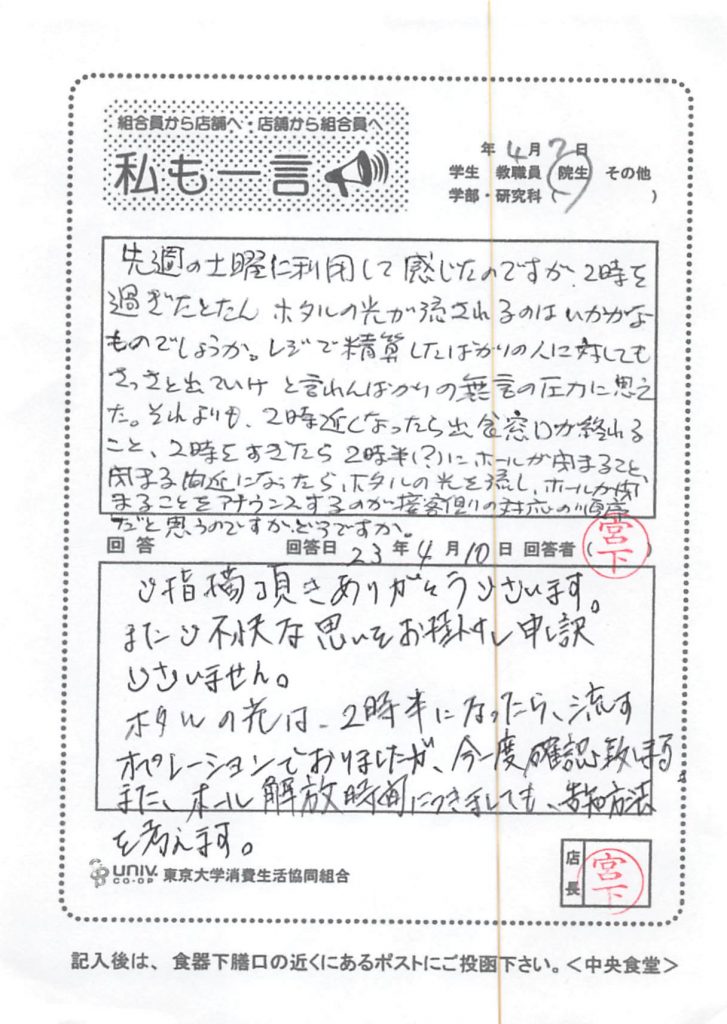 組合員から店舗へ・店舗から組合員へ
私も一言
年4月7日
学生 教職員 院生 その他
学部・研究科( )
先週の土曜に利用して感じたのですが、2時を
過ぎたとたん ホタルの光が流されるのはいかがな
ものでしょうか。レジで精算したばかりの人に対しても
さっさと出ていけ と言わんばかりの無言の圧力に思え
た。それよりも、2時近くなったら出食窓口が終わる
こと、2時をすぎたら2時半(?)にホールが閉まること
閉まる間近になったら、ホタルの光を流し、ホールが閉
まることをアナウンスするのが接客側の対応の順序
だと思うのですが、どうですか。
回答 回答日 23年4月10日 回答者(宮下)
ご指摘頂きありがとうございます。
またご不快な思いをお掛けし申し訳
ございません。
ホタルの光は、2時半になったら、流す
オペレーションでおりましたが、今一度確認致しまする。
また、ホール解放時間につきましても、告知方法
を考えます。
univ.
CO-OP 東京大学消費生活協同組合
店長 宮下
記入後は、食器下膳口の近くにあるポストにご投函下さい。<中央食堂>